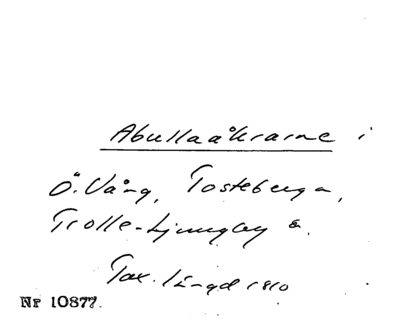 Abullaåkrarne i
Ö. Vång, Tosteberga,
Trolle-Ljungby s.
Tax. längd 1810
Nr 10877.